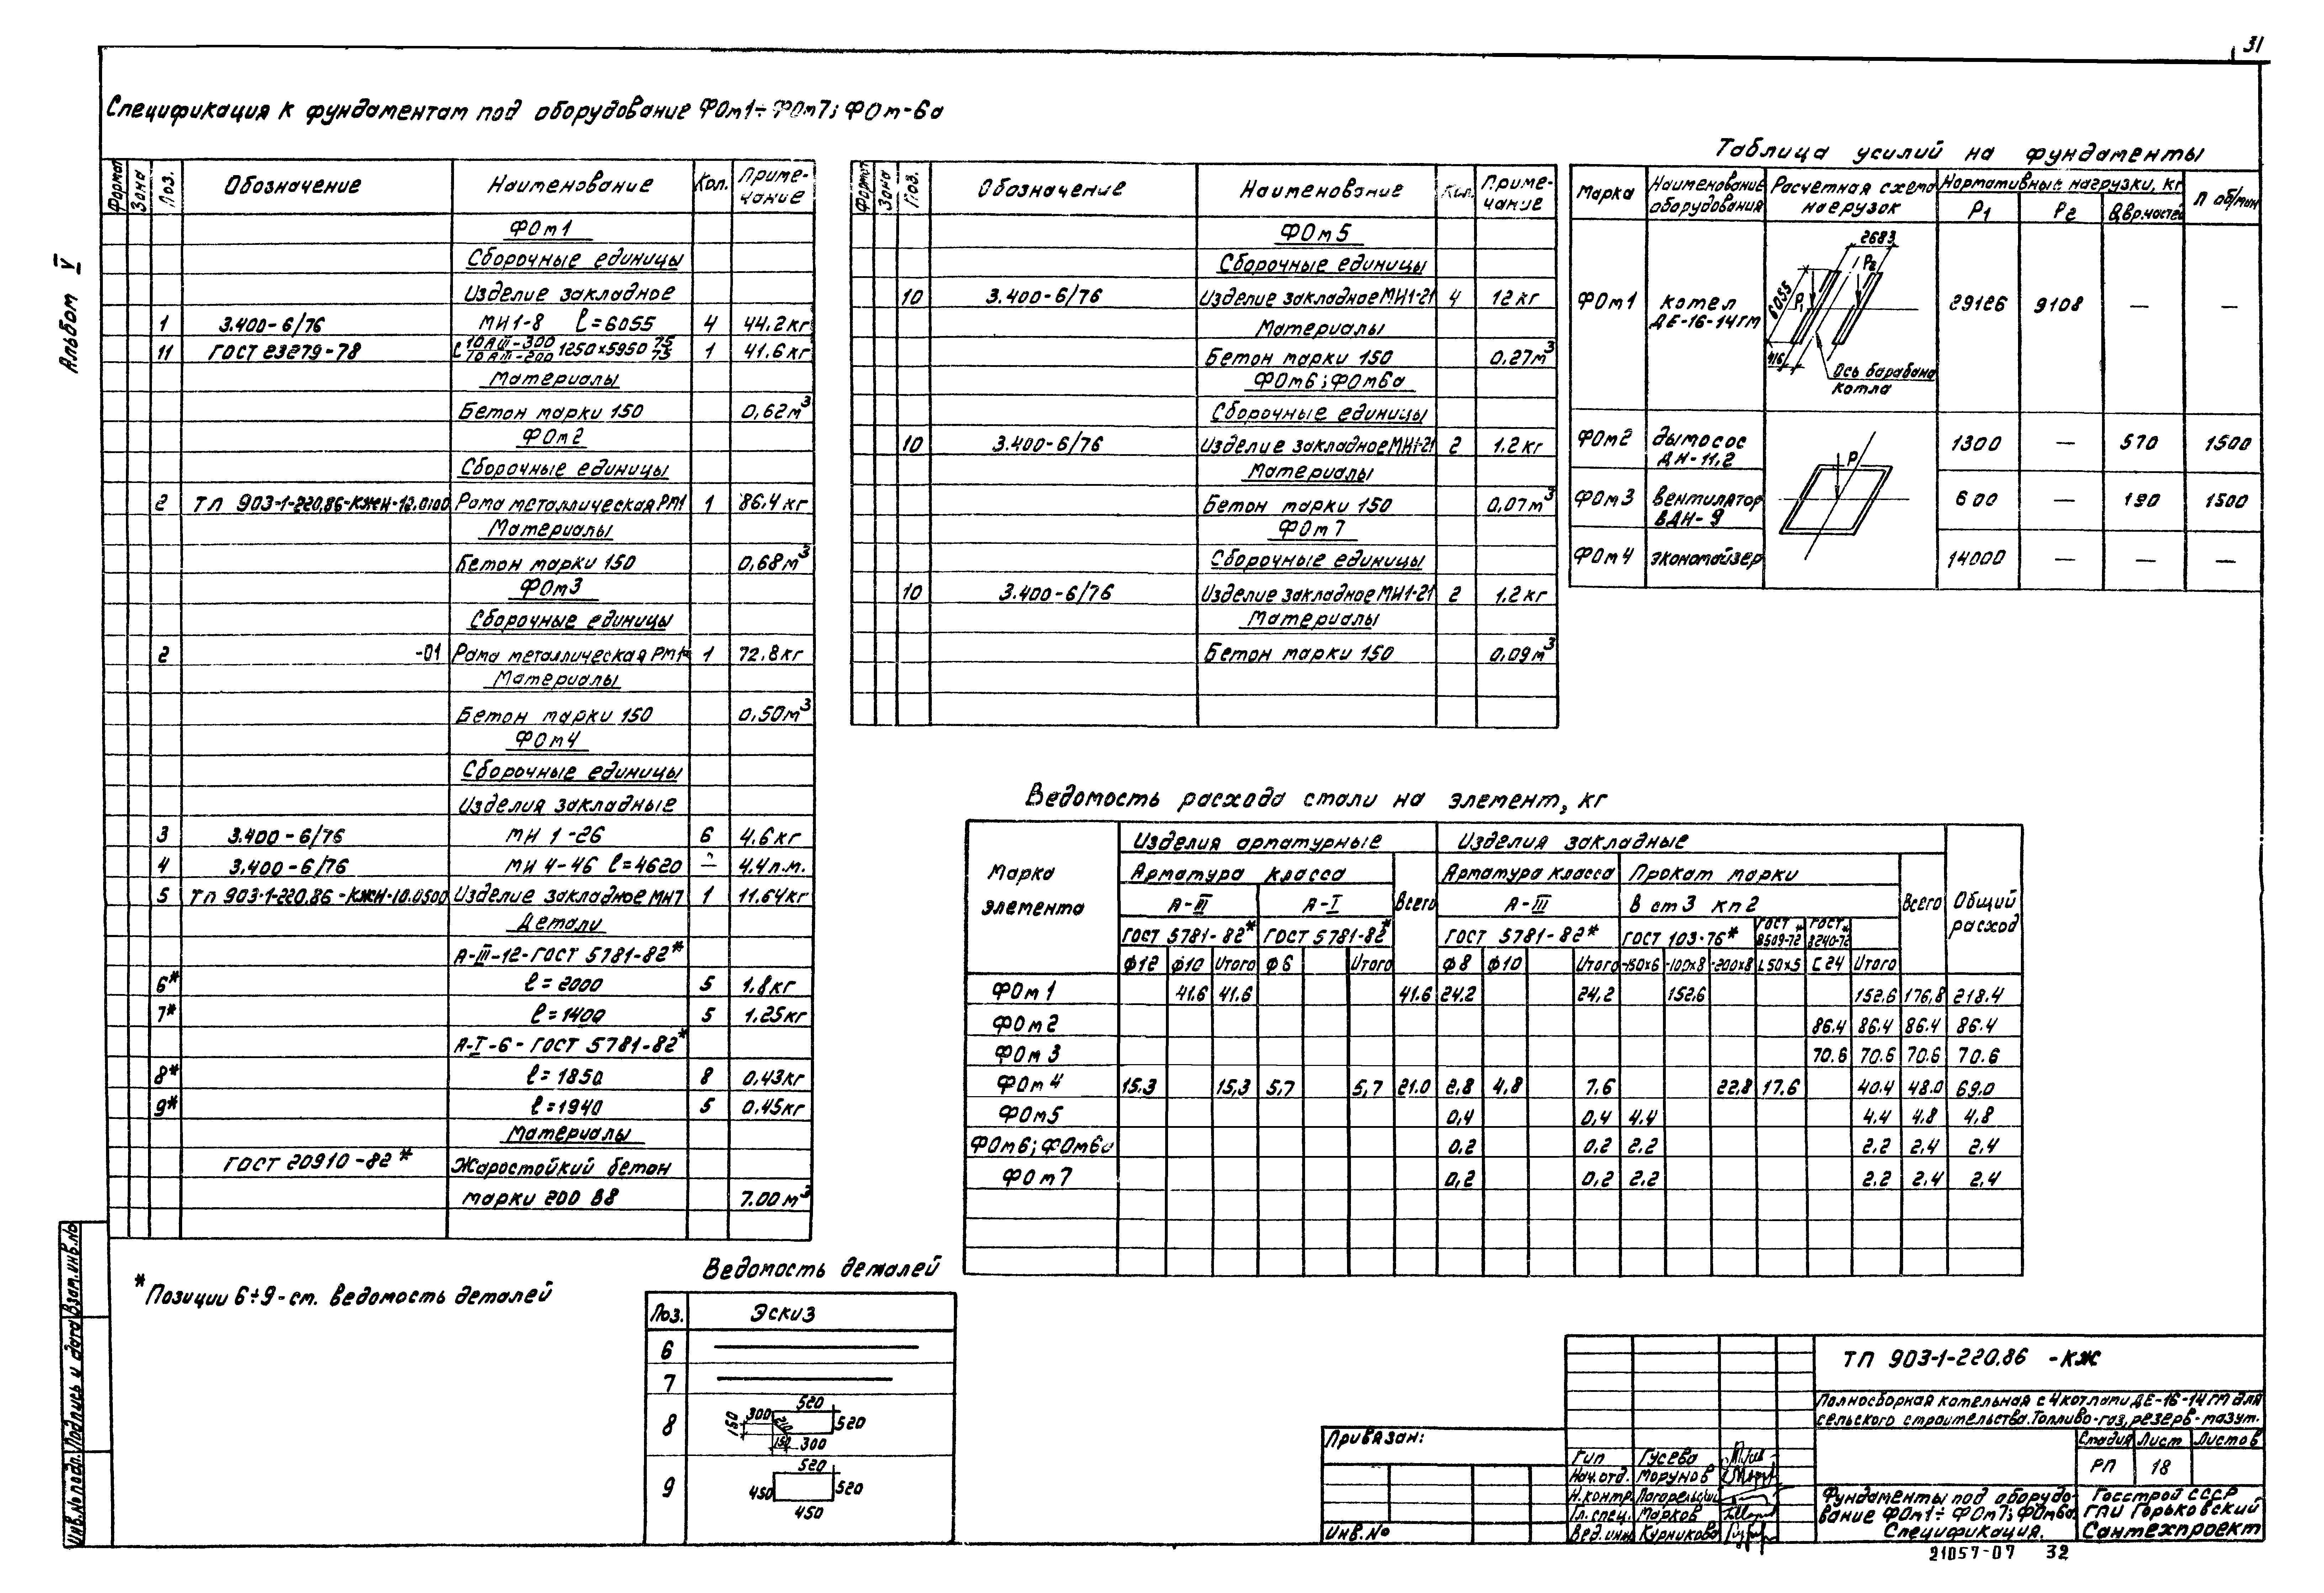 31
Альбом V
Спецификация к фундаментам под оборудование ФОм1÷ФОм7; ФОм-6а
Формат Зона Поз. Обозначение Наименование Кол. Примечание
ФОм1
Сборочные единицы
Изделие закладное
1 3.400-6/76 МН1-8 ℓ=6055 4 44.2кг
11 ГОСТ 23279-78 С 10АIII-300/10АIII-200 1250×5950 75/75 1 41.6кг
Материалы
Бетон марки 150 0,62м³
ФОм2
Сборочные единицы
2 ТП 903-1-220.86-КЖН-12.0100 Рама металлическая РМ1 1 86.4кг
Материалы
Бетон марки 150 0,68м³
ФОм3
Сборочные единицы
2 -01 Рама металлическая РМ1а 1 72.8кг
Материалы
Бетон марки 150 0,50м³
ФОм4
Сборочные единицы
Изделия закладные
3 3.400-6/76 МН 1-26 6 4.6кг
4 3.400-6/76 МН 4-46 ℓ=4620 – 4.4п.м.
5 ТП 903-1-220.86-КЖН-10.0500 Изделие закладное МН7 1 11.64кг
Детали
А-III-12-ГОСТ 5781-82*
6* ℓ=2000 5 1.8кг
7* ℓ=1400 5 1.25кг
А-I-6-ГОСТ 5781-82*
8* ℓ=1850 8 0.43кг
9* ℓ=1940 5 0.45кг
Материалы
ГОСТ 20910-82* Жаростойкий бетон
марки 200 В8 7.00м³
Формат Зона Поз. Обозначение Наименование Кол. Примечание
ФОм5
Сборочные единицы
10 3.400-6/76 Изделие закладное МН1-21 4 1.2кг
Материалы
Бетон марки 150 0.27м³
ФОм6; ФОм6а
Сборочные единицы
10 3.400-6/76 Изделие закладное МН1-21 2 1.2кг
Материалы
Бетон марки 150 0,07м³
ФОм7
Сборочные единицы
10 3.400-6/76 Изделие закладное МН1-21 2 1.2кг
Материалы
Бетон марки 150 0,09м³
Таблица усилий на фундаменты
Марка Наименование оборудования Расчетная схема нагрузок Нормативные нагрузки, кг n об/мин
Р1 Р2 Qвр.частей
ФОм1 котел ДЕ-16-14ГМ 29126 9108 — —
2683 Р2 6055 Р1 416
Ось барабана котла
ФОм2 дымосос ДН-11,2 1300 — 570 1500
Р
ФОм3 вентилятор ВДН-9 600 — 190 1500
ФОм4 экономайзер 14000 — — —
Ведомость расхода стали на элемент, кг
Марка элемента Изделия арматурные Изделия закладные Общий расход
Арматура класса Всего Арматура класса Прокат марки Всего
А-III А-I А-III В ст3 кп2
ГОСТ 5781-82* ГОСТ 5781-82* ГОСТ 5781-82* ГОСТ 103-76* ГОСТ* 8509-72 ГОСТ* 8240-72
Ф12 Ф10 Итого Ф6 Итого Ф8 Ф10 Итого -150×6 -100×8 -200×8 L50×5 С24 Итого
ФОм1 41.6 41.6 41.6 24.2 24,2 152.6 152.6 176,8 218.4
ФОм2 86.4 86.4 86.4 86.4
ФОм3 70.6 70.6 70.6 70.6
ФОм4 15.3 15,3 5,7 5,7 21.0 2,8 4,8 7.6 22,8 17.6 40.4 48.0 69.0
ФОм5 0,4 0,4 4.4 4.4 4,8 4,8
ФОм6; ФОм6а 0.2 0.2 2.2 2.2 2,4 2,4
ФОм7 0,2 0,2 2.2 2.2 2.4 2,4
*Позиции 6÷9-см. ведомость деталей
Ведомость деталей
Поз. Эскиз
6
7
8 520 150 300 210 520 150 300
9 520 450 520 450
Инв.№подл. Подпись и дата Взам.инв.№
Привязан:
Инв.№
ТП 903-1-220.86 -КЖ
Полносборная котельная с 4 котлами ДЕ-16-14ГМ для
сельского строительства. Топливо-газ, резерв-мазут.
Стадия Лист Листов
РП 18
ГИП Гусева
Нач.отд. Морунов
Н.контр. Погорельский
Гл.спец. Марков
Вед.инж. Курникова
Фундаменты под оборудо-
вание ФОм1÷ФОм7; ФОм6а
Спецификация.
Госстрой СССР
ГПИ Горьковский
Сантехпроект
21057-07 32